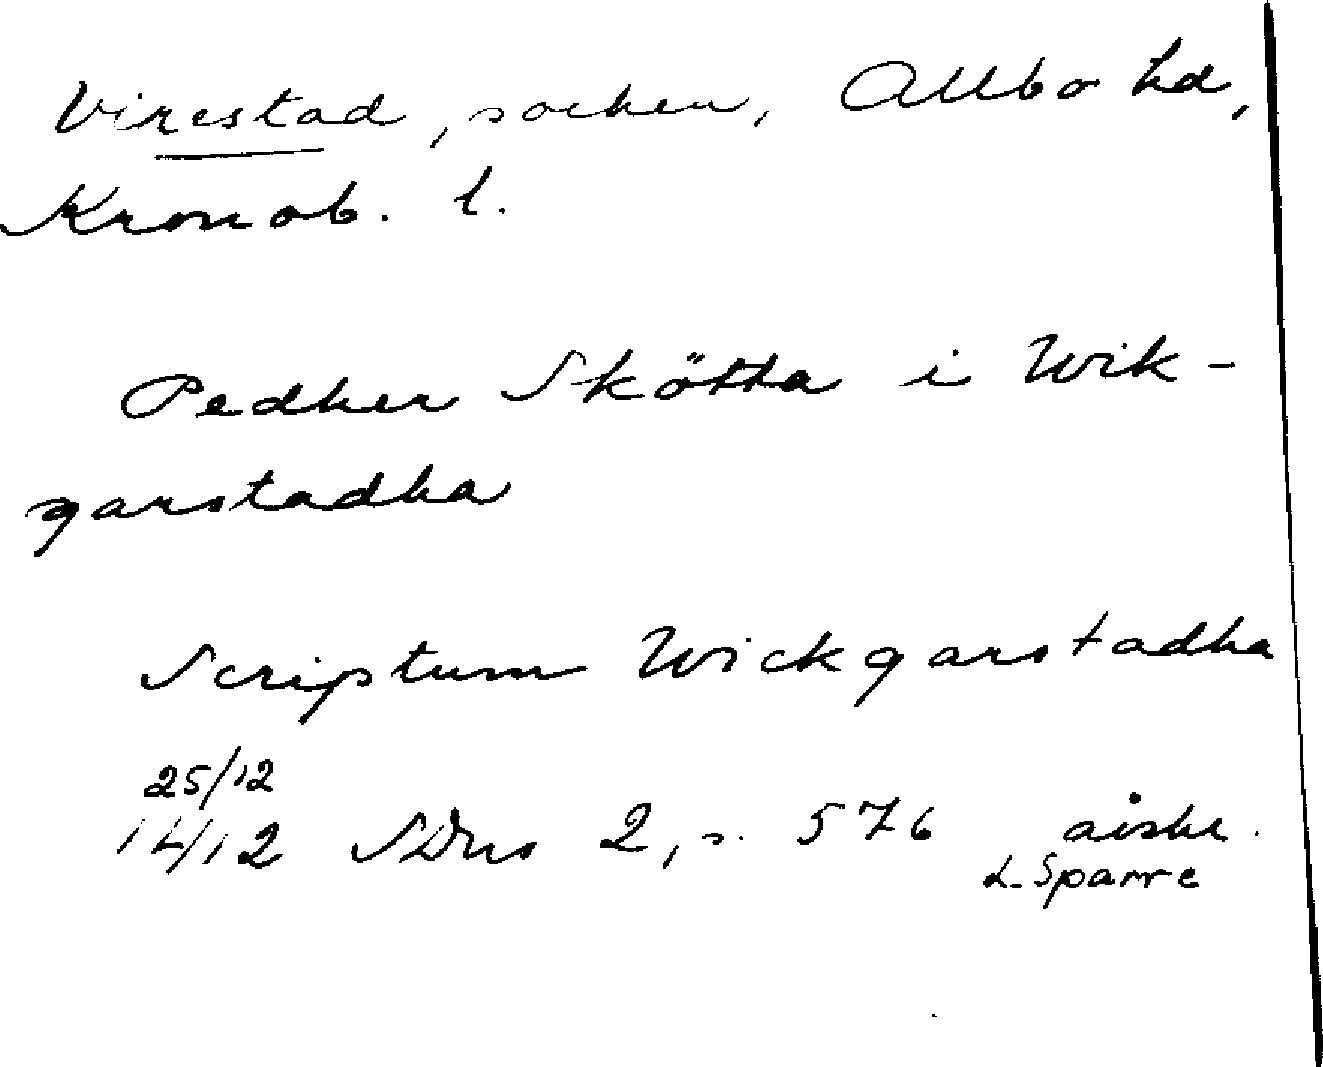 Virestad, socken, Allbo hd,
Kronob. l.
Pedher Skötta i Wik-
garstadha
Scriptum Wickgarstadha
25/12
1412 SDns 2, s. 576 avskr.
L. Sparre